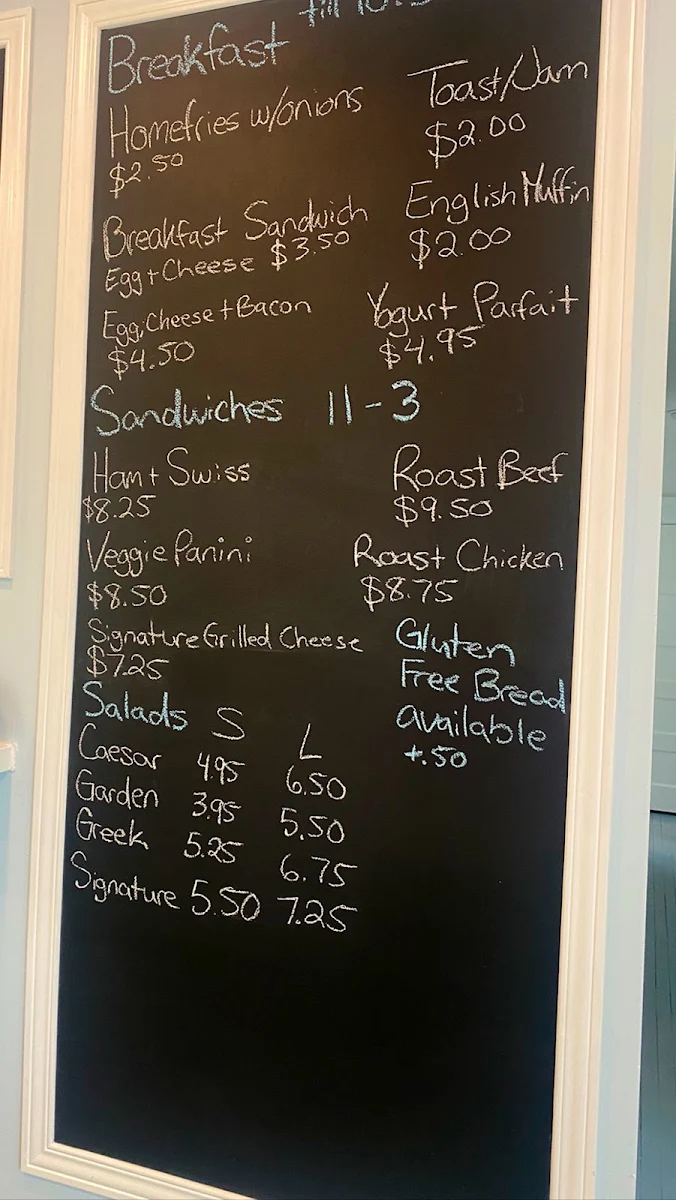 Breakfast till
Homefries w/onions
$2.50
Toast/Jam
$2.00
Breakfast Sandwich
Egg + Cheese $3.50
English Muffin
$2.00
Egg, Cheese + Bacon
$4.50
Yogurt Parfait
$4.95
Sandwiches 11-3
Ham + Swiss
$8.25
Roast Beef
$9.50
Veggie Panini
$8.50
Roast Chicken
$8.75
Signature Grilled Cheese
$7.25
Gluten
Free Bread
available
+.50
Salads S L
Caesar 4.95 6.50
Garden 3.95 5.50
Greek 5.25 6.75
Signature 5.50 7.25